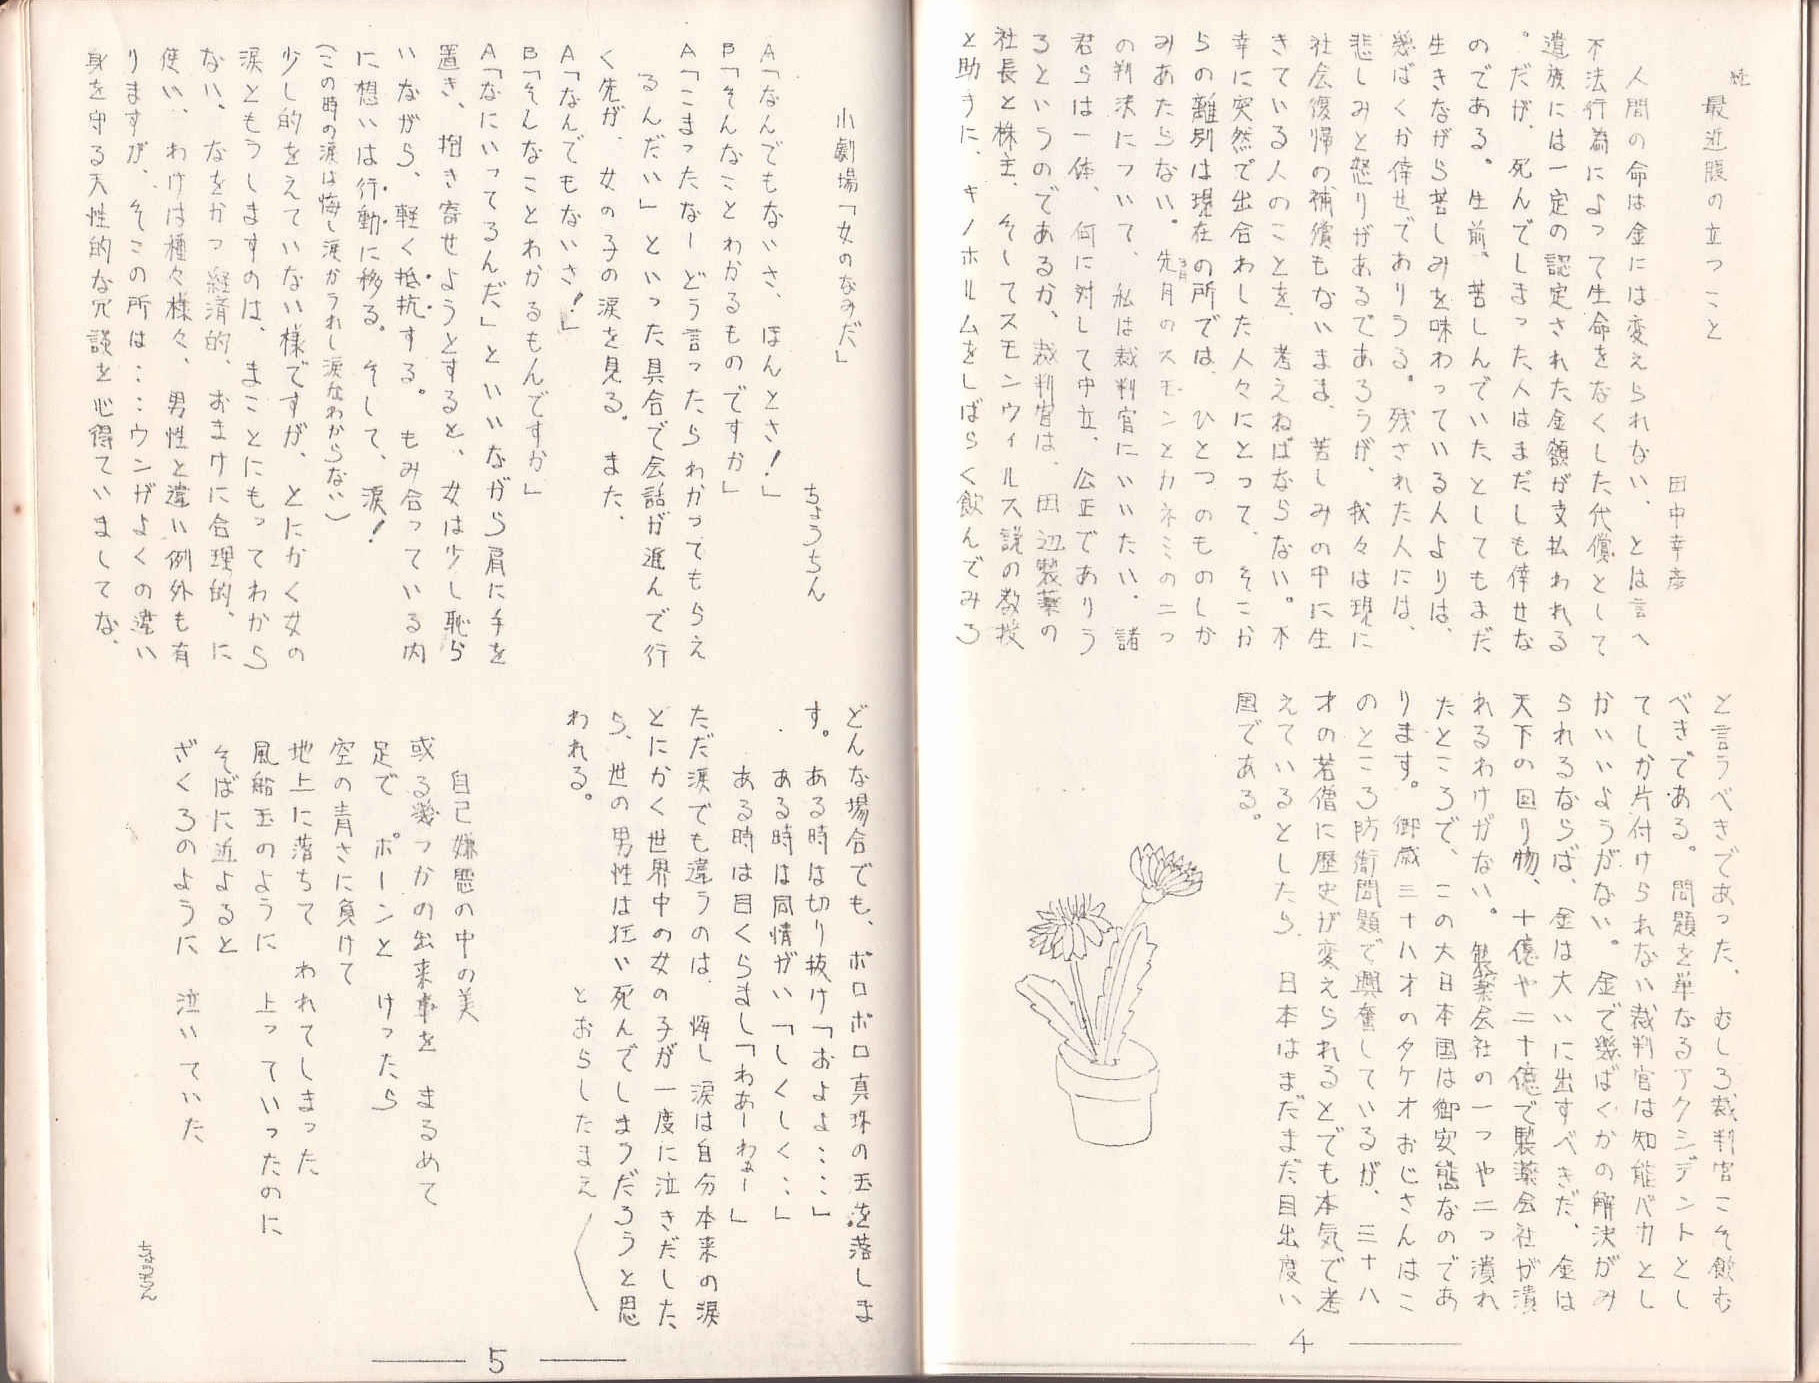 続
最近腹の立つこと
田中幸彦
人間の命は金には変えられない、とは言へ
不法行為によって生命をなくした代償として
遺族には一定の認定された金額が支払われる
。だが、死んでしまった人はまだしも倖せな
のである。生前、苦しんでいたとしてもまだ
生きながら苦しみを味わっている人よりは、
幾ばくか倖せでありうる。残された人には、
悲しみと怒りがあるであろうが、我々は現に
社会復帰の補償もないまま、苦しみの中に生
きている人のことを、考えねばならない。不
幸に突然で出合わした人々にとって、そこか
らの離別は現在の所では、ひとつのものしか
みあたらない。先月のスモンとカネミの二つ
の判決について、私は裁判官にいいたい、諸
君らは一体、何に対して中立、公正でありう
るというのであるか、裁判官は、田辺製薬の
社長と株主、そしてスモンウィルス説の教授
と助手に、キノホルムをしばらく飲んでみろ
と言うべきであった、むしろ裁判官こそ飲む
べきである。問題を単なるアクシデントとし
てしか片付けられない裁判官は知能バカとし
かいいようがない。金で幾ばくかの解決がみ
られるならば、金は大いに出すべきだ、金は
天下の回り物、十億や二十億で製薬会社が潰
れるわけがない。製薬会社の一つや二つ潰れ
たところで、この大日本国は御安態なのであ
ります。御歳三十八才のタケオおじさんはこ
のところ防衛問題で興奮しているが、三十八
才の若僧に歴史が変えられるとでも本気で考
えているとしたら、日本はまだまだ目出度い
国である。
4
小劇場「女のなみだ」
ちょうちん
A「なんでもないさ、ほんとさ!」
B「そんなことわかるものですか」
A「こまったなーどう言ったらわかってもらえ
るんだい」といった具合で会話が進んで行
く先が、女の子の涙を見る。また、
A「なんでもないさ!」
B「そんなことわかるもんですか」
A「なにいってるんだ」といいながら肩に手を
置き、抱き寄せようとすると、女は少し恥ら
いながら、軽く抵抗する。もみ合っている内
に想いは行動に移る。そして、涙!
(この時の涙は悔し涙かうれし涙なわからない)
少し的をえていない様ですが、とにかく女の
涙ともうしますのは、まことにもってわから
ない、なをかつ経済的、おまけに合理的、に
使い、わけは種々様々、男性と違い例外も有
りますが、そこの所は…ウンがよくの違い
身を守る天性的な冗談を心得ていましてな、
どんな場合でも、ポロポロ真珠の玉を落しま
す。ある時は切り抜け「およよ……」
ある時は同情がい「しくしく……」
ある時は目くらまし「わあーわぁー」
ただ涙でも違うのは、悔し涙は自分本来の涙
とにかく世界中の女の子が一度に泣きだした
ら、世の男性は狂い死んでしまうだろうと思
われる。　とおらしたまえ
自己嫌悪の中の美
或る幾つかの出来事を　まるめて
足で　ポーンと　けったら
空の青さに負けて
地上に落ちて　われてしまった
風船玉のように　上っていったのに
そばに近よると
ざくろのように　泣いていた
ちょうちん
5